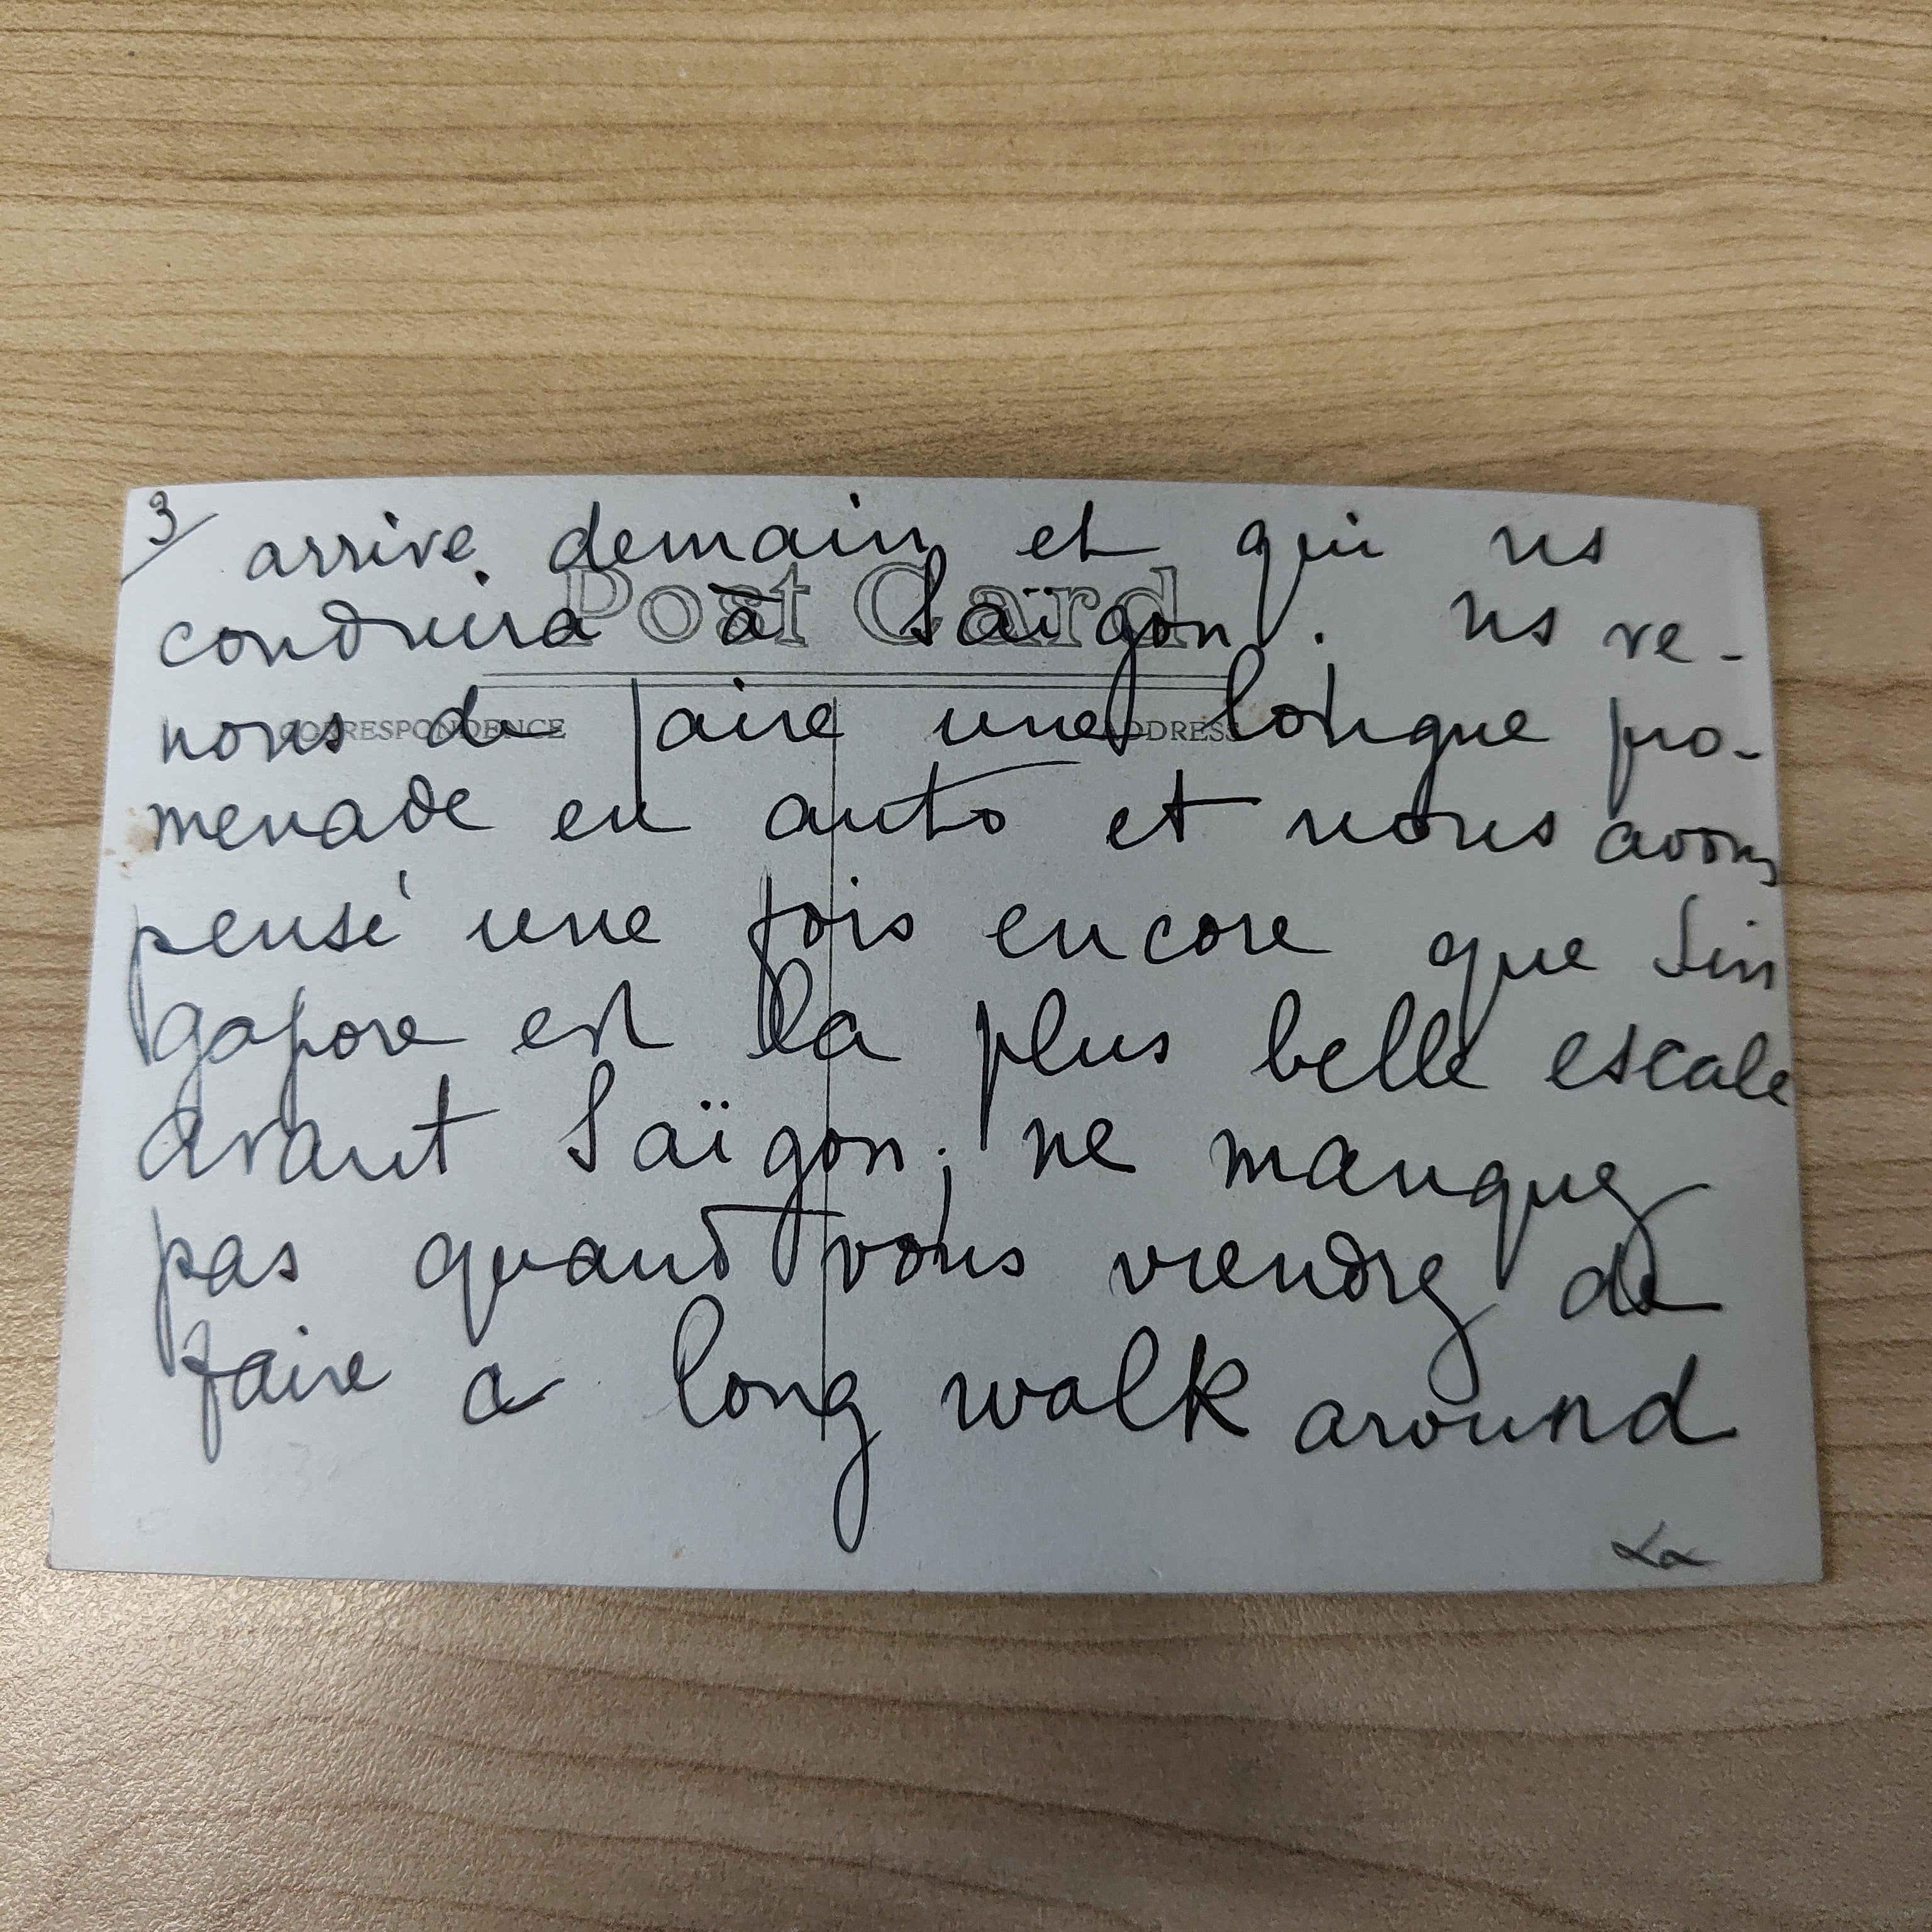 3/ arrive demain et qui ns
Post Card
conduira à Saïgon. ns re-
CORRESPONDENCE ADDRESS
nons de faire une longue pro-
menade en auto et nous avons
pensé une fois encore que Sin
gapore est la plus belle escale
avant Saïgon; ne manquez
pas quand vous viendrez de
faire a long walk around